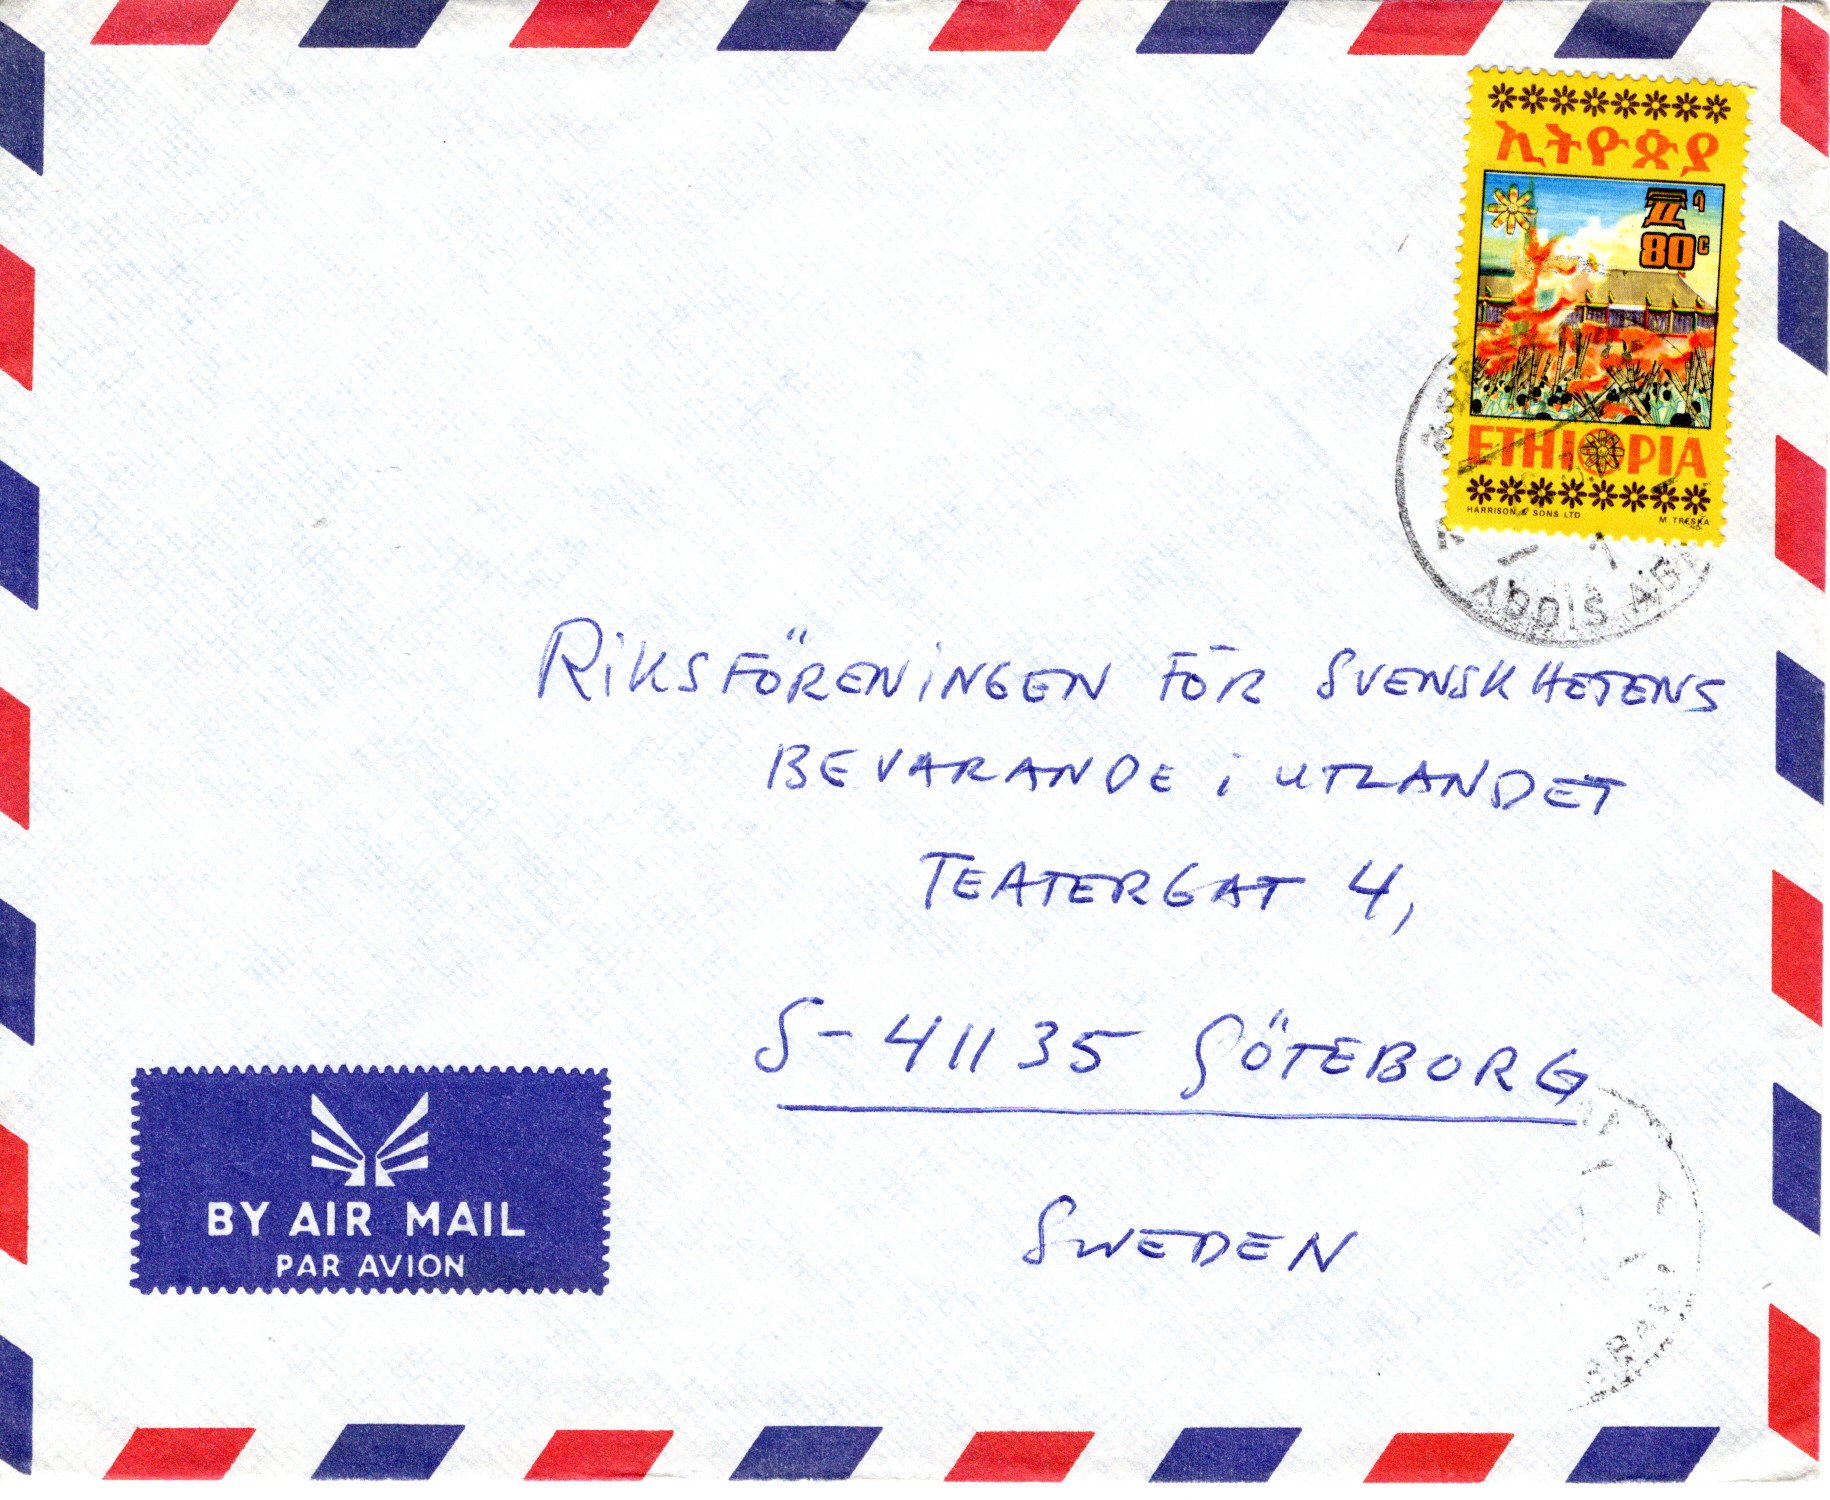 ኢትዮጵያ
፹ ሳ
80c
ETHIOPIA
HARRISON & SONS LTD M TRESKA
ADDIS
RIKSFÖRENINGEN FÖR SVENSKHETENS
BEVARANDE i UTLANDET
TEATERGAT 4,
S-41135 GÖTEBORG
SWEDEN
BY AIR MAIL
PAR AVION